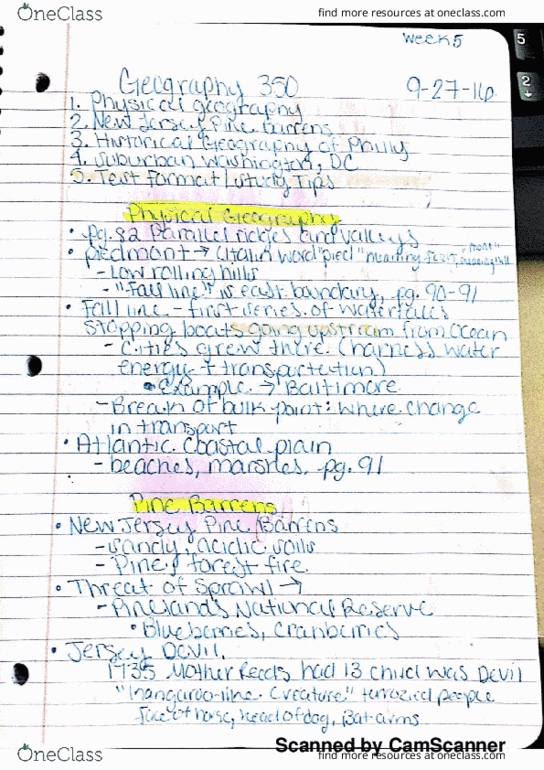 OneClass
find more resources at oneclass.com
week 5
5
2
Geography 350
9-27-16
1. Physical geography
2. New Jersey Pine Barrens
3. Historical Geography of Philly
4. Suburban Washington, DC
5. Test Format / Study Tips
Physical Geography
• pg. 82 Parallel ridges and valleys
• piedmont → (Italian word "pied" meaning foot,
- Low rolling hills
- "Fall line" is east boundary, pg. 90-91
• Fall line - first series of waterfalls
stopping boats going upstream from ocean
- Cities grew there. (harness water
energy + transportation)
• Example → Baltimore
- Break of bulk point: where change
in transport
• Atlantic Coastal plain
- beaches, marshes, pg. 91
Pine Barrens
• New Jersey Pine Barrens
- sandy, acidic soils
- Pine, forest fire
• Threat of Sprawl →
- Pinelands National Reserve
• Blueberries, Cranberries
• Jersey Devil.
1735 Mother Leeds had 13 child was Devil
creature" people
face of horse, head of dog, Bat arms
Scanned by CamScanner
OneClass
find more resources at oneclass.com